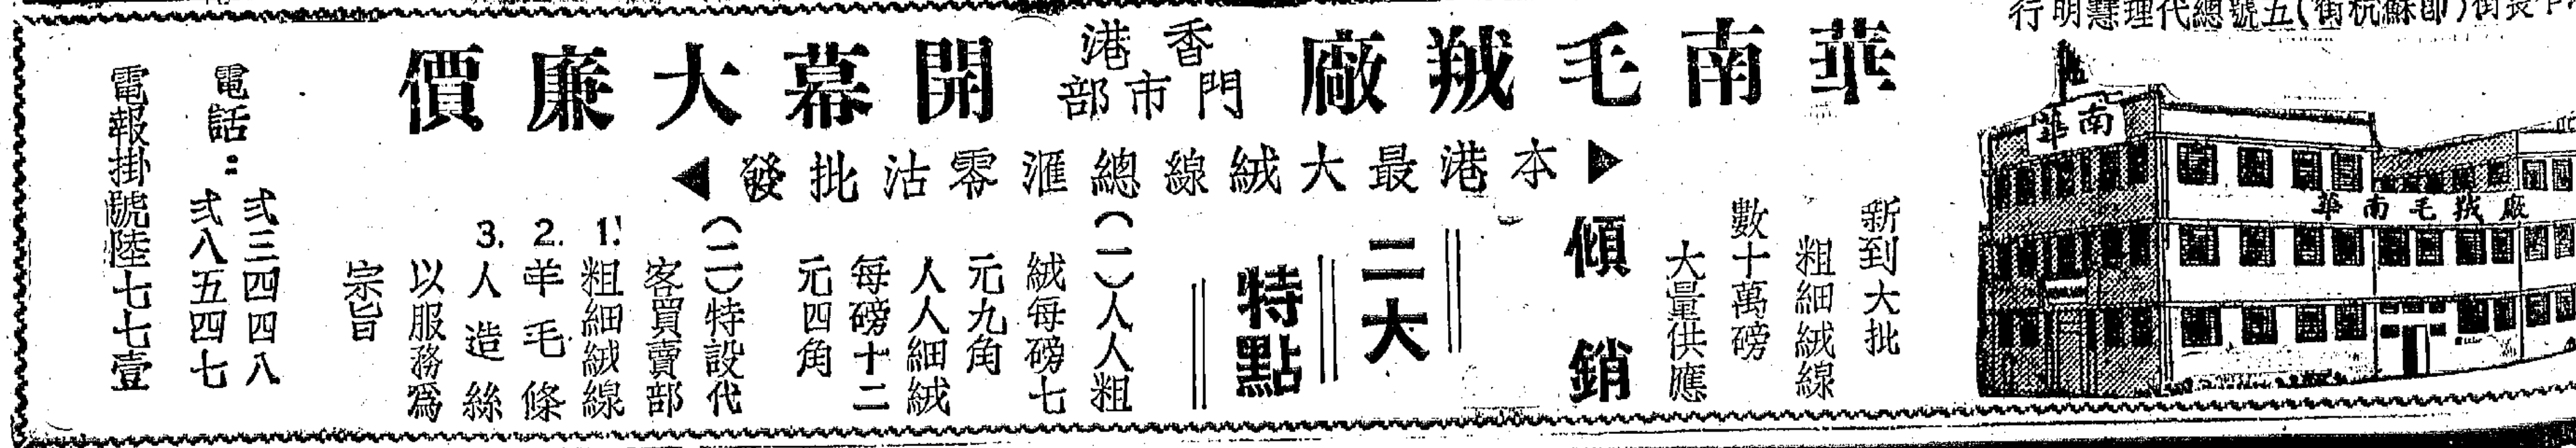 行明慧理代總號五(街杭蘇即)街長
華南毛羢廠
香港
門市部
開幕大廉價
▶本港最大絨線總滙零沽批發◀
華南
華南毛羢廠
新到大批
粗細絨線
數十萬磅
大量供應
傾銷
二大
特點
(一)人人粗
絨每磅七
元九角
人人細絨
每磅十二
元四角
(二)特設代
客買賣部
1.粗細絨線
2.羊毛條
3.人造絲
以服務爲
宗旨
電話：弍三四四八
弍八五四七
電報掛號陸七七壹